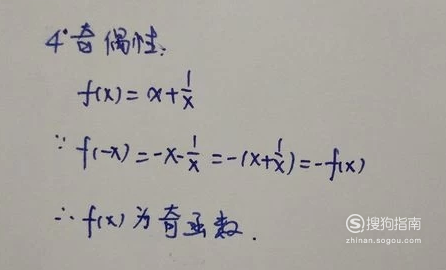 4° 奇偶性:
f(x) = x + 1/x
∵ f(-x) = -x - 1/x = -(x + 1/x) = -f(x)
∴ f(x) 为奇函数.
搜狗指南
zhinan.sogou.com